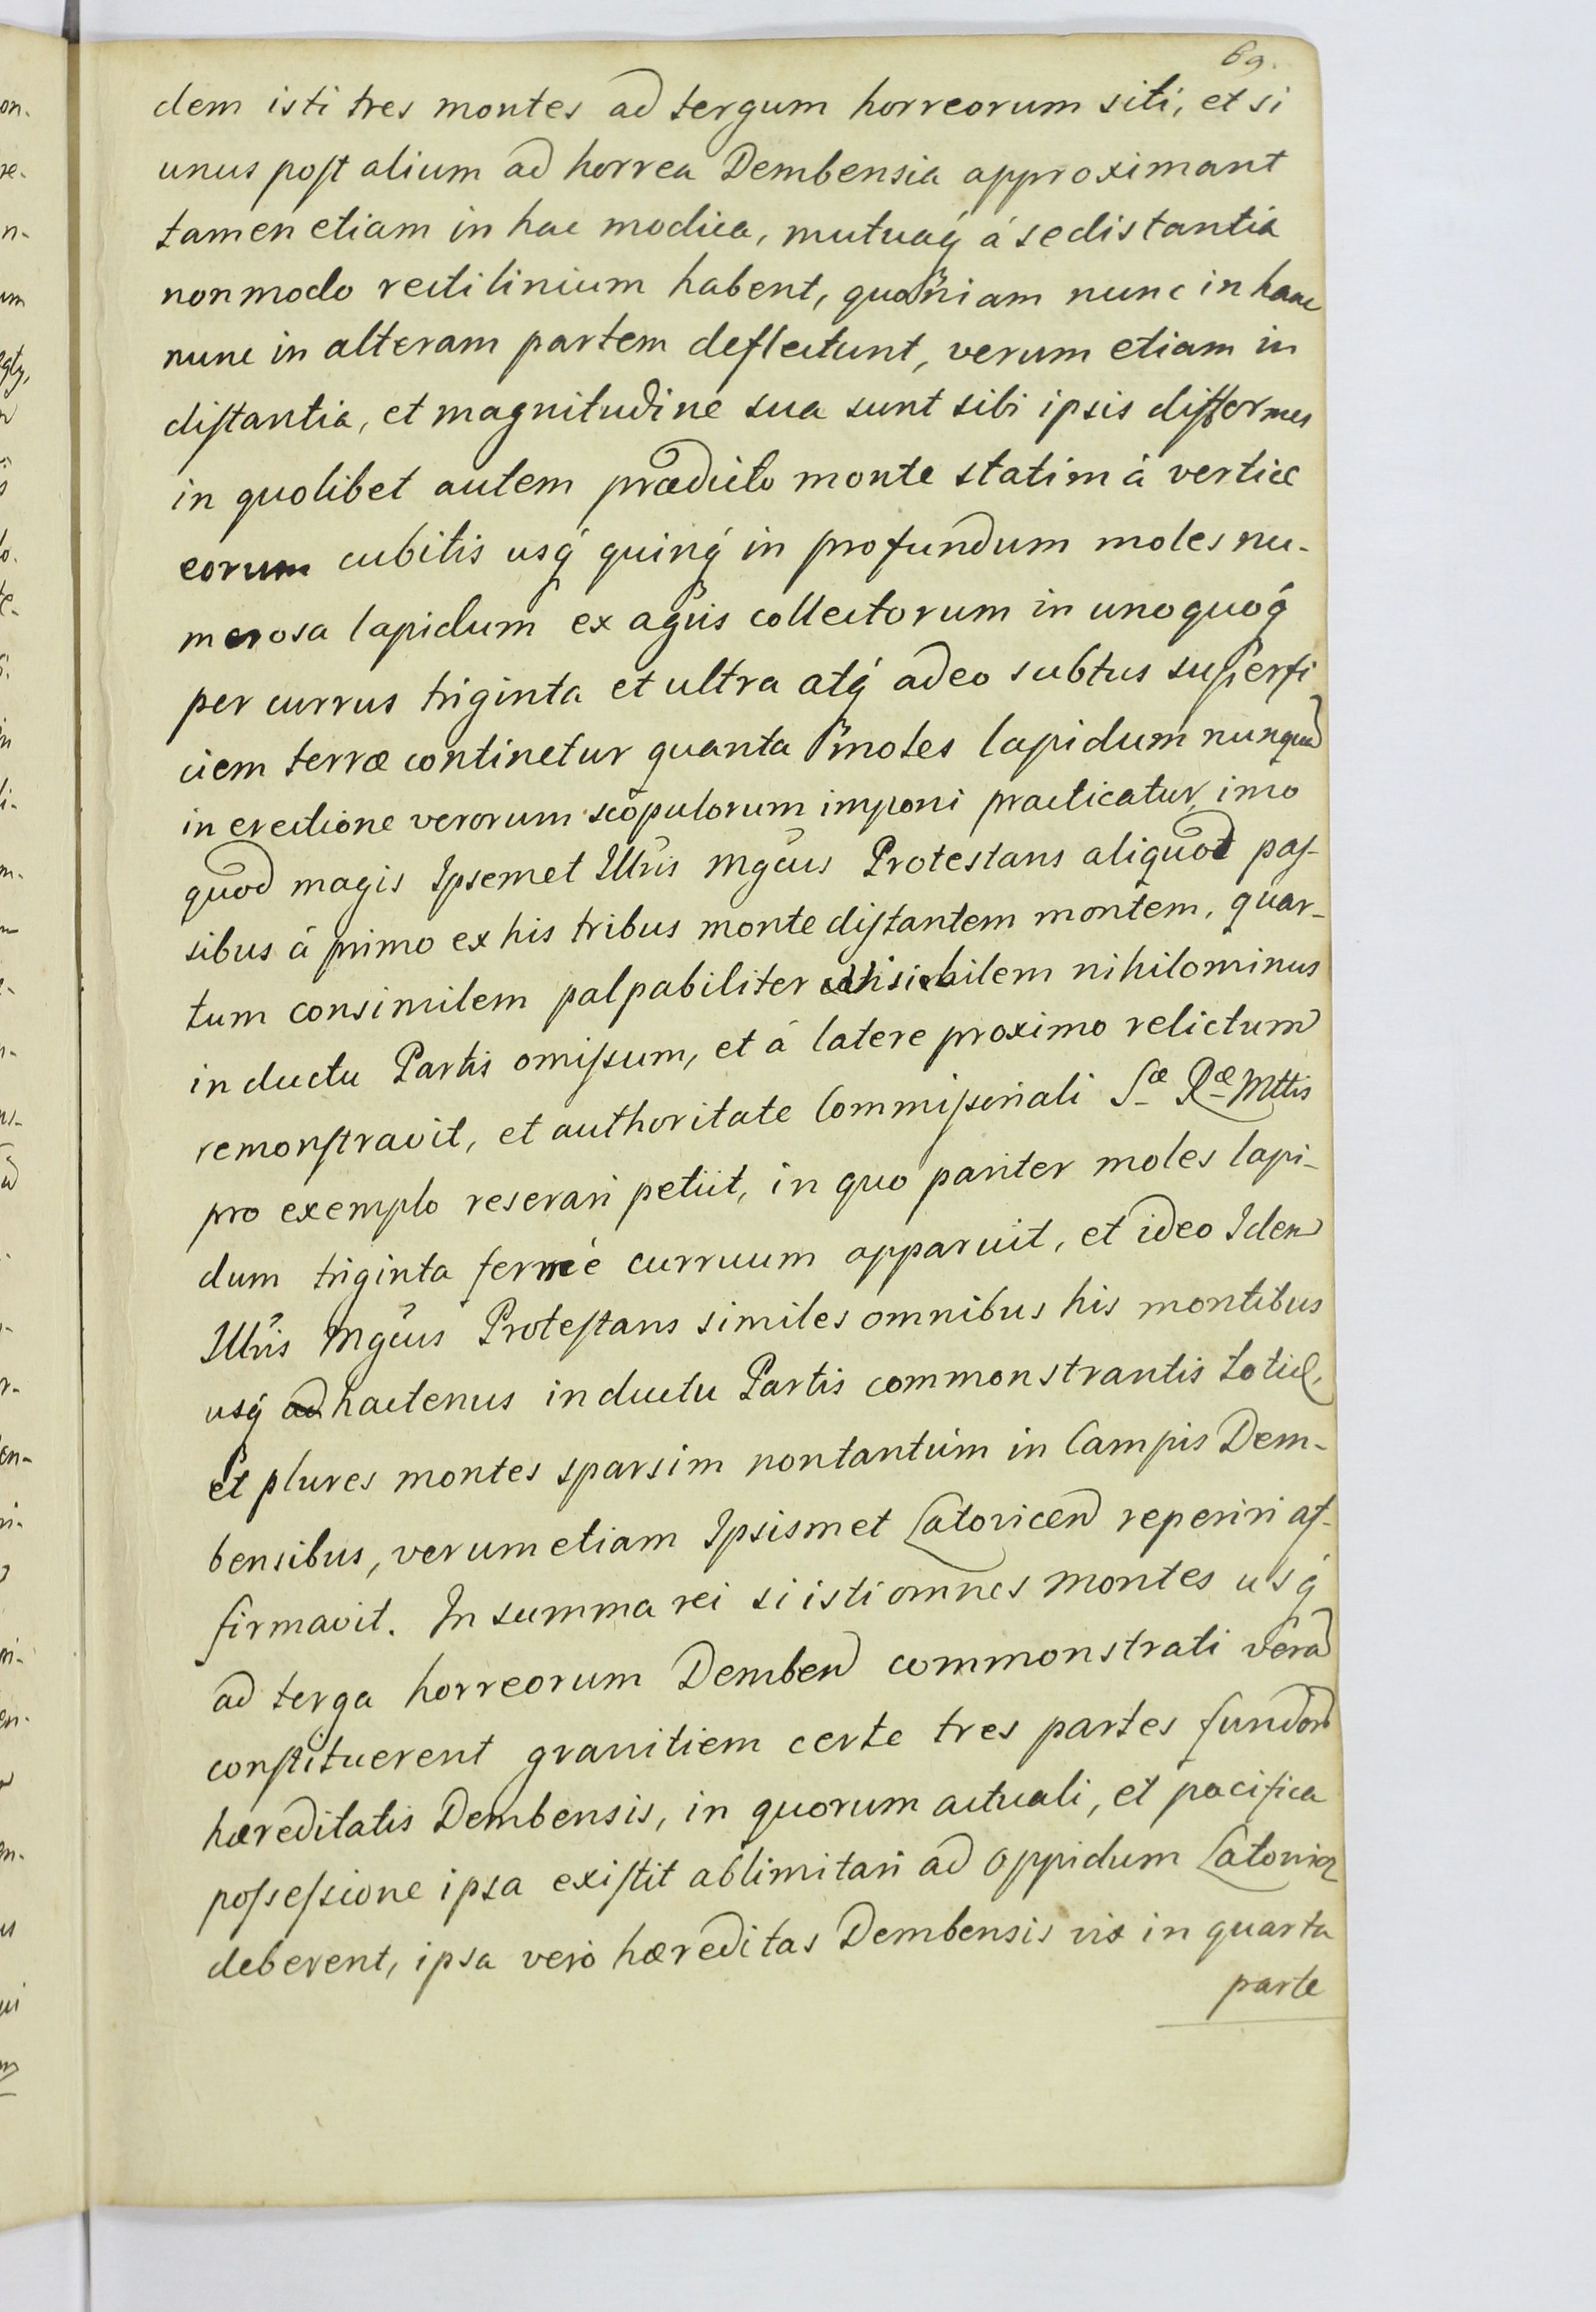 69.
dem isti tres montes ad tergum horreorum siti, et si
unus post alium ad horrea Dembensia approximant
tamen etiam in hac modica, mutuaq́ á se distantia
non modo rectilinium habent, quoniam nunc in hanc
nunc in alteram partem deflectunt, verum etiam in
distantia, et magnitudine sua sunt sibi ipsis difformes
in quolibet autem prædicto monte statim á vertice
eorum cubitis usq́ quinq́ in profundum moles nu-
merosa lapidum ex agris collectorum in unoquoq́
per currus triginta et ultra atq́ adeo subtus superfi
ciem terræ continetur quanta moles lapidum nunquã
in erectione verorum scopulorum imponi practicatur, imo
quod magis Ipsemet Illris Mgcus Protestans aliquot pas-
sibus á primo ex his tribus monte distantem montem, quar-
tum consimilem palpabiliter nihilominus
in ductu Partis omissum, et á latere proximo relictum
remonstravit, et authoritate Commissoriali Sæ Ræ Mttis
pro exemplo reserari petiit, in quo pariter moles lapi-
dum triginta fermé curruum apparuit, et ideo Idem
Illris Mgcus Protestans similes omnibus his montibus
usq́ ad hactenus in ductu Partis commonstrantis totid,
et plures montes sparsim non tantùm in Campis Dem-
bensibus, verum etiam Ipsismet Latovicen reperiri af-
firmavit. In summa rei si isti omnes montes usq́
ad terga horreorum Demben commonstrati veram
constituerent granitiem certe tres partes fundor
hæreditatis Dembensis, in quorum actuali, et pacifica
possessione ipsa existit ablimitari ad Oppidum Latovicz
deberent, ipsa veró hæreditas Dembensis vix in quarta
parte